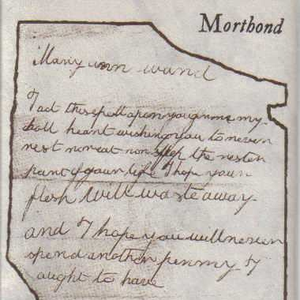 Mortbond
Mary ann ward
I act this spell upon you from my
holl heart wishing you to never
rest nor eat nor sleep the resten
part of your life I hope your
flesh will waste away
and I hope you will never
spend another penny I
aught to have